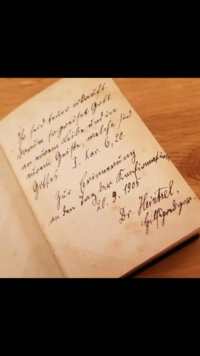 Ihr seid teuer erkauft.
Darum so preiset Gott
an eurem Leibe und in
eurem Geiste, welche sind
Gottes. I. Kor. 6, 20
Zur Erinnerung
an den Tag der Konfirmation
20. 9. 1905
Dr. Heintzel,
Hilfsprediger.